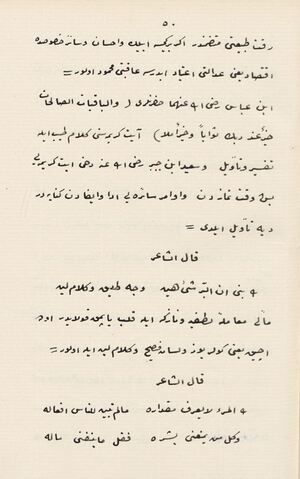 ٥٠
رقت طبيعتى متضمندر اكر بر كيمسه اييلك واحسان وسائر خصوصده
اقتصاد يعنى عدالتى اعتياد ايدرسه عاقبتى محمود اولور =
ابن عباس رضى الله عنهما حضرتلرى ( والباقيات الصالحات
خير عند ربك ثواباً وخير أملا ) آيت كريمه سنى كلام طيب ايله
تفسير وتأويل وسعيد ابن جبير رضى الله عنه دخى آيت كريمه يى
بش وقت نمازدن واوامر سائره يى ادا وايفادن كنايه در
ديه تأويل ايلدى =
قال الشاعر
بنى ان البر شئ هين وجه طليق وكلام لين
مآلى معامله لطيفه و نازكانه ايله قلب ياپمق قولايدر او ده
آچيق يعنى كولر يوز ولسان فصيح وكلام لين ايله اولور =
قال الشاعر
المرء لا يعرف مقداره مالم تبين للناس افعاله
وكل من يمنعنى بشره فقل ما ينفعنى ماله